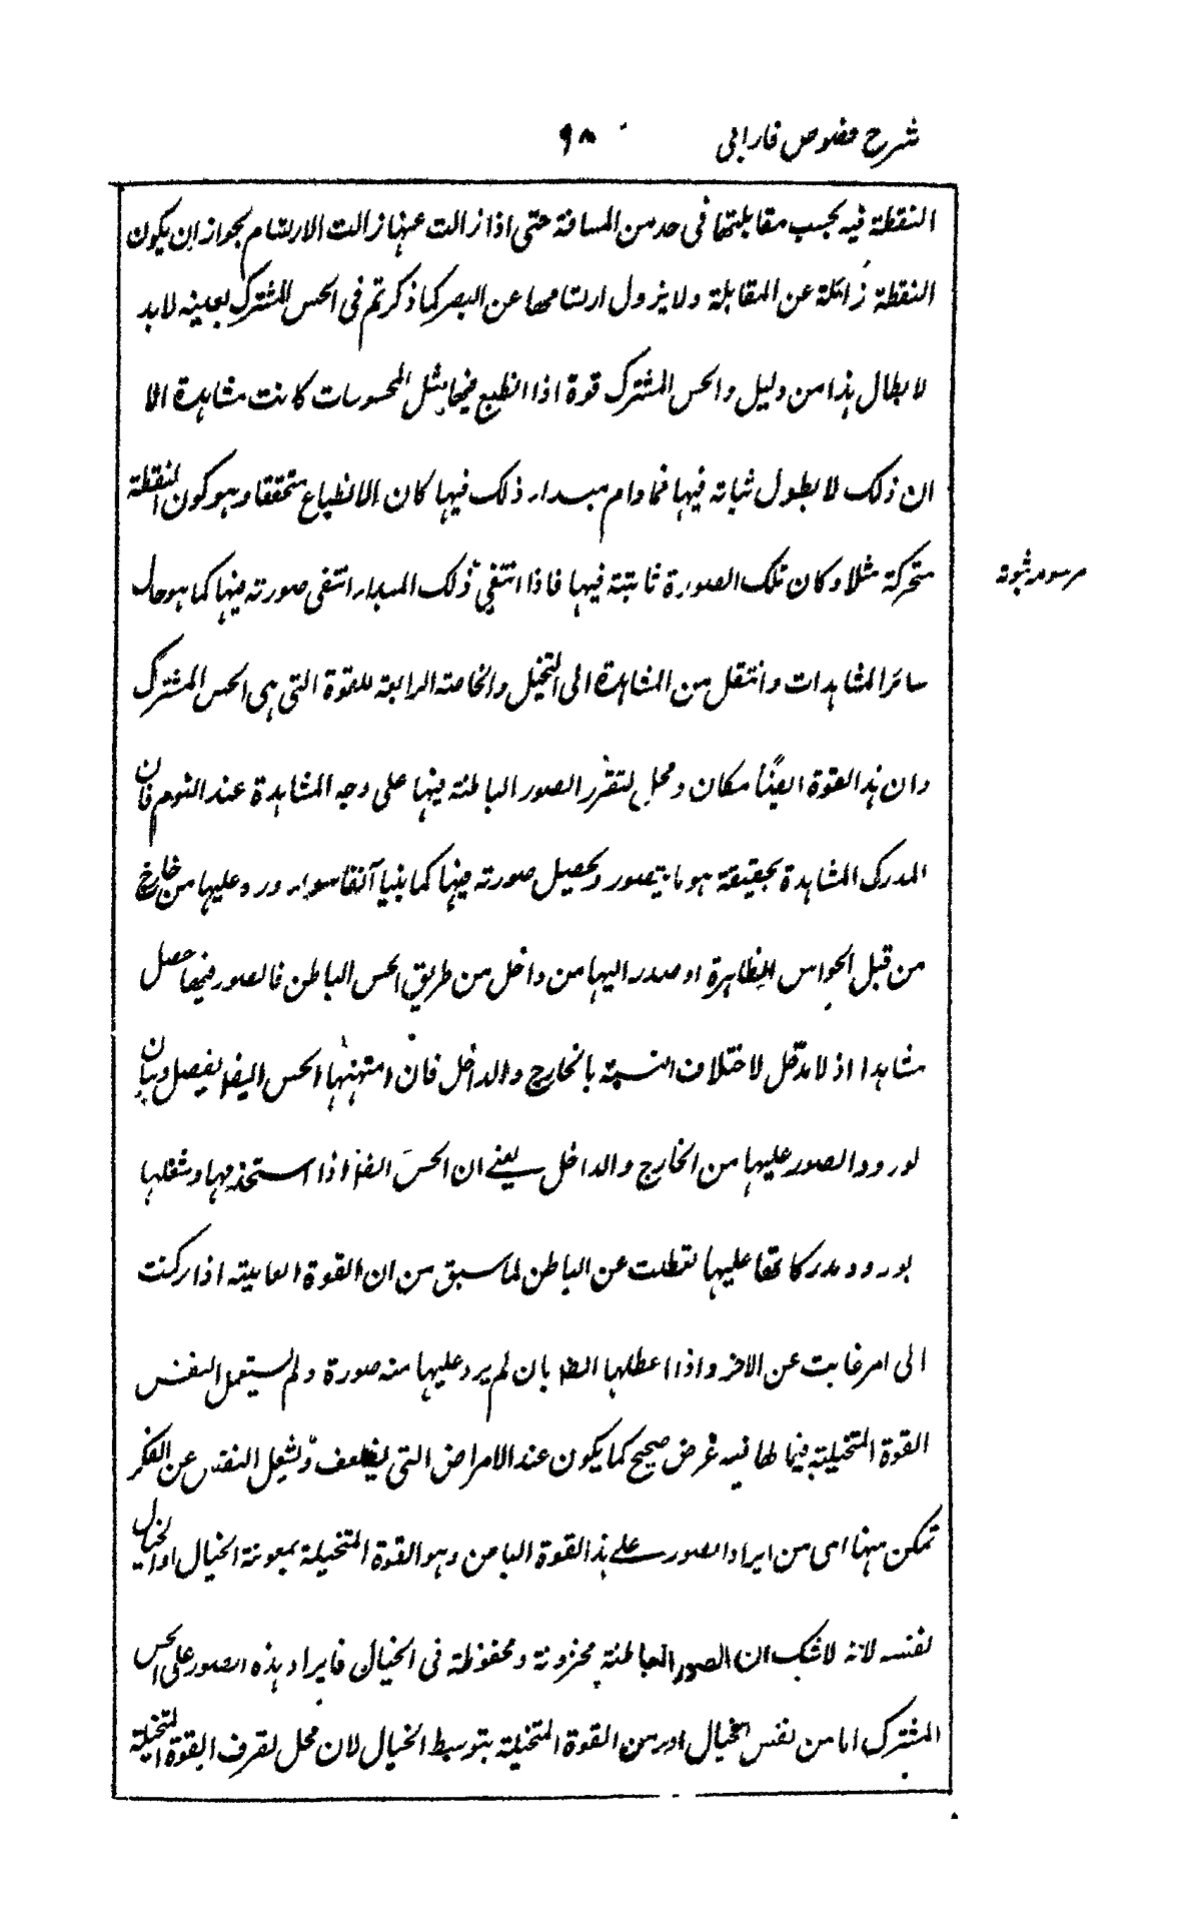 شرح فصوص فارابی ٩٨
النقطة فيه بحسب مقابلتها فى حد من المسافة حتى اذا زالت عنها زالت الارتسام لجواز ان يكون
النقطة زائلة عن المقابلة ولا يزول ارتسامها عن البصر كما ذكرتم فى الحس المشترك بعينه لا بد
لابطال هذا من دليل والحس المشترك قوة اذا انطبع فيها مثل المحسوسات كانت مشاهدة الا
ان ذلك لا يطول ثباته فيها فما دام مبدا ذلك فيها كان الانطباع متحققا وهو كون النقطة
متحركة مثلا وكان تلك الصورة ثابتة فيها فاذا انتفى ذلك المبدا انتفى صورته فيها كما هو حال
مرسومه ثبوته
سائر المشاهدات وانتقل من المشاهدة الى التخيل والخاصة الرابعة للقوة التى هى الحس المشترك
وان هذه القوة ايضًا مكان ومحل لتقرر الصور الباطنة فيها على وجه المشاهدة عند النوم فان
المدرك المشاهدة بحقيقة هو ما يتصور ويحصل صورته فيها كما بينا آنفا سواء ورد عليها من خارج
من قبل الحواس الظاهرة او صدر اليها من داخل من طريق الحس الباطن فالصور فيها حصل
مشاهدا اذ لا مدخل لاختلاف النسبة بالخارج والداخل فان امتهنها الحس الظا يفصل وبيان
لورود الصور عليها من الخارج والداخل يعنى ان الحس الظا اذا استخدمها وشغلها
بورود مدركاتها عليها تعطلت عن الباطن لما سبق من ان القوة اذا ركنت
الى امر غابت عن الاخر واذا اعطلها الظا بان لم يرد عليها منه صورة ولم يستعمل النفس
القوة المتخيلة فيما لها فيه غرض صحيح كما يكون عند الامراض التى يضعف ويشغل النفس عن الفكر
تمكن منها اى من ايراد الصور على هذه القوة الباطن وهو القوة المتخيلة بمعونة الخيال او الخيال
نفسه لانه لا شك ان الصور الباطنة مخزونة ومحفوظة فى الخيال فايراد هذه الصور على الحس
المشترك اما من نفس الخيال او من القوة المتخيلة بتوسط الخيال لان محل تصرف القوة المتخيلة